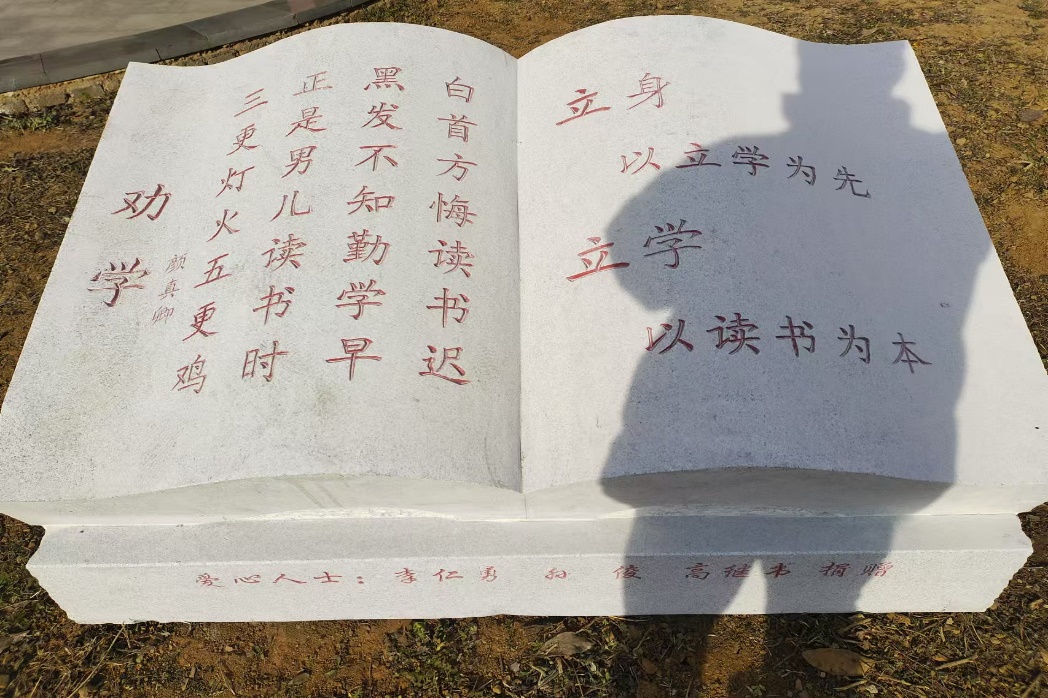 劝学
颜真卿
三更灯火五更鸡
正是男儿读书时
黑发不知勤学早
白首方悔读书迟
立身
以立学为先
立学
以读书为本
爱心人士：李仁勇 孙俊 高继书 捐赠